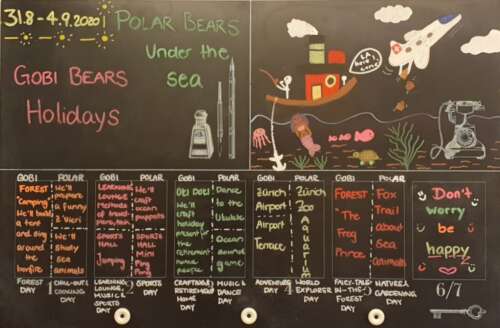 31.8 - 4.9.2020
POLAR BEARS
Under the
sea
GOBI BEARS
Holidays
LA
here I
come
GOBI
FOREST
"Camping"
We'll build
a tent
and dig
around
the
bonfire
FOREST
DAY
1
POLAR
We'll
prepare
a funny
Z'Vieri
We'll
Study
Sea
animals
CHILL-OUT/
COOKING
DAY
GOBI
LEARNING
LOUNGE
methods
of travel
SPORTS
HALL
Jumping
LEARNING
LOUNGE,
MUSIC &
SPORTS
DAY
2
POLAR
We'll
craft
ocean
puppets
SPORTS
HALL
Mini
SPORTS
DAY
GOBI
We'll
craft
holiday
for the
retirement
home
people
CRAFTING/
RETIREMENT
HOME
DAY
3
POLAR
Dance
to the
Ukulele
Ocean
sound
game
MUSIC &
DANCE
DAY
GOBI
Zürich
Airport
Airport
Terrace
ADVENTURE
DAY
4
POLAR
Zürich
Zoo
Aquarium
WORLD
EXPLORER
DAY
GOBI
FOREST
The
Frog
Prince
FAIRY-TALE-
IN-THE-
FOREST
DAY
5
POLAR
Fox
Trail
about
Sea
animals
NATURE &
GARDENING
DAY
Don't
worry
be
happy
6/7